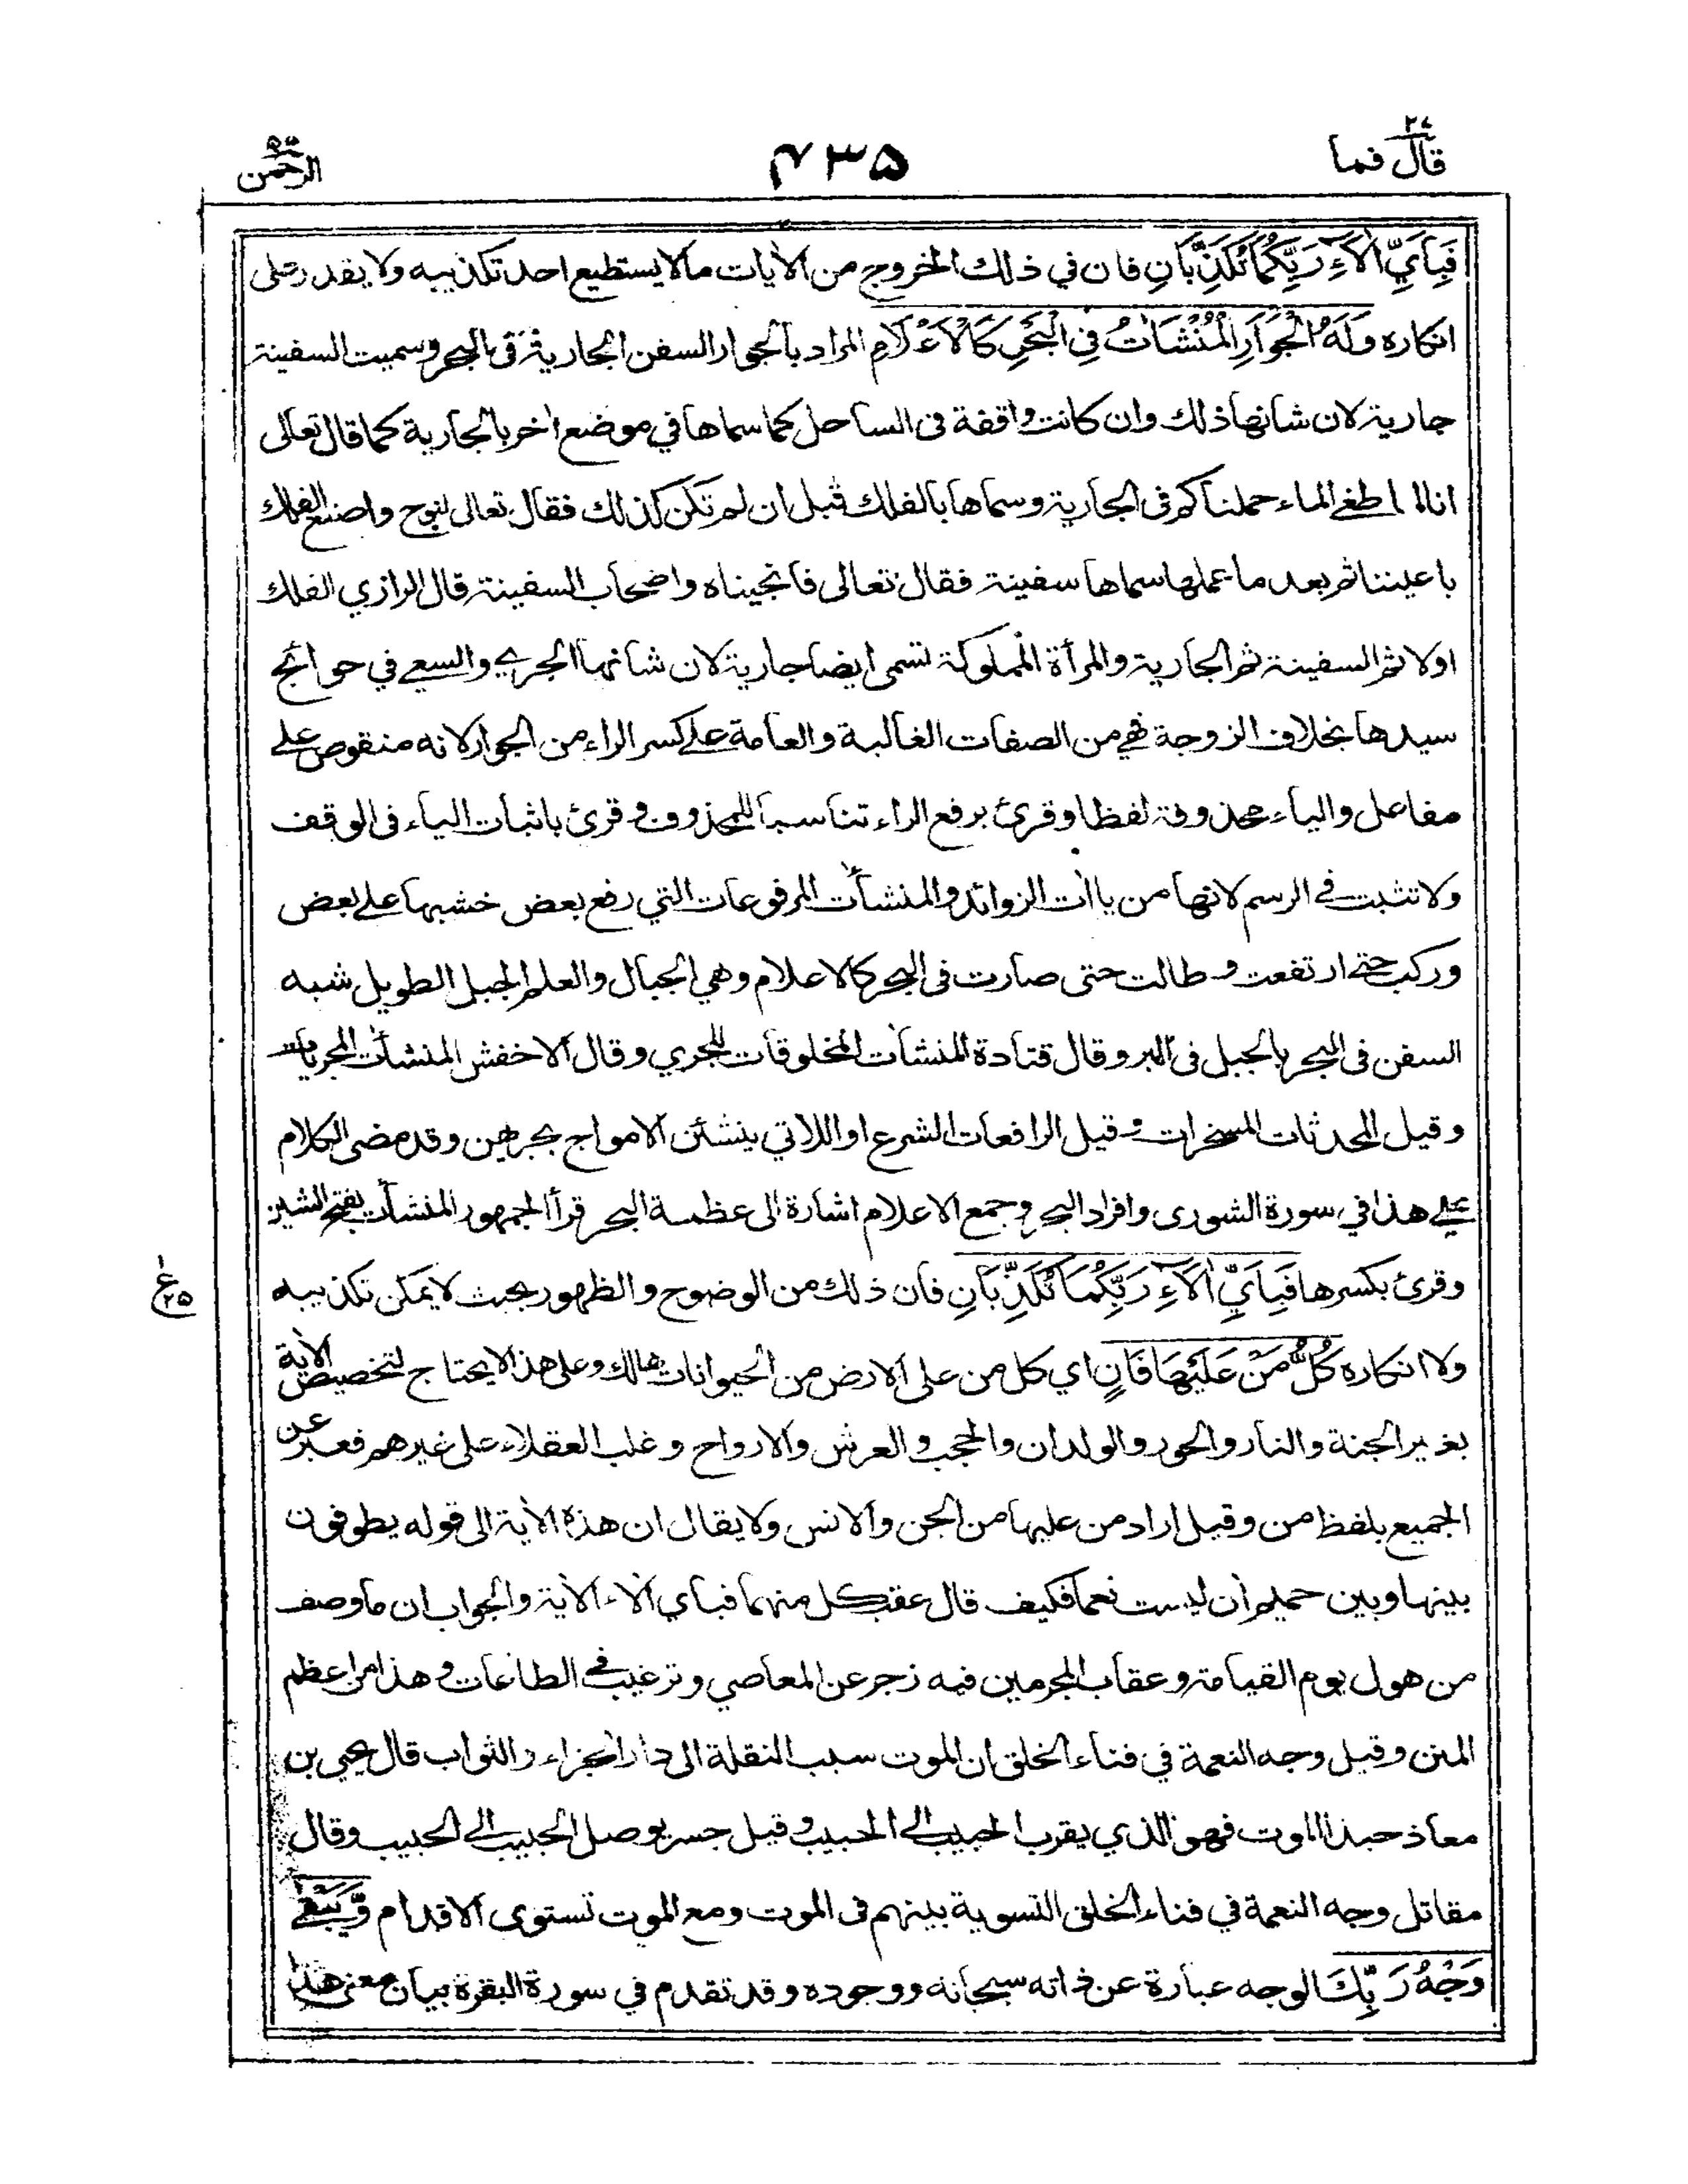 قال فما ٢٧
۴۳۵
الرحمن ۵۵
فَبِاَيِّ اٰلَآءِ رَبِّكُمَا تُكَذِّبَانِ فان في ذلك الخروج من الاٰيات مالا يستطيع احد تكذيبه ولا يقدر على
انكاره وَلَهُ الْجَوَارِ الْمُنْشَاٰتُ فِي الْبَحْرِ كَالْاَعْلَامِ المراد بالجوار السفن الجارية في البحر وسميت السفينة
جارية لان شانها ذلك وان كانت واقفة فى الساحل كما سماها في موضع اٰخر بالجارية كما قال تعالى
انا لما طغى الماء حملناكم فى الجارية وسماها بالفلك قبل ان لم تكن كذلك فقال تعالى لنوح واصنع الفلك
باعيننا ثم بعد ما عملها سماها سفينة فقال تعالى فانجيناه واصحاب السفينة قال الرازي الفلك
اولا ثم السفينة ثم الجارية والمرأة المملوكة تسمى ايضا جارية لان شانها الجري والسعي في حوائج
سيدها بخلاف الزوجة فهي من الصفات الغالبة والعامة على كسر الراء من الجوار لانه منقوص على
مفاعل والياء محذوفة لفظا وقرئ برفع الراء تناسبا للمحذوف وقرئ باثبات الياء فى الوقف
ولا تثبت في الرسم لانها من ياآت الزوائد والمنشآت المرفوعات التي رفع بعض خشبها على بعض
وركب حتى ارتفعت وطالت حتى صارت فى البحر كالاعلام وهي الجبال والعلم الجبل الطويل شبه
السفن فى البحر بالجبل فى البر وقال قتادة المنشآت المخلوقات للجري وقال الاخفش المنشآت المجريات
وقيل المحدثات المسخرات وقيل الرافعات الشرع او اللاتي ينشئن الامواج بجريهن وقد مضى الكلام
على هذا في سورة الشورى وافراد البحر وجمع الاعلام اشارة الى عظمة البحر قرأ الجمهور المنشآت بفتح الشين
وقرئ بكسرها فَبِاَيِّ اٰلَآءِ رَبِّكُمَا تُكَذِّبَانِ فان ذلك من الوضوح والظهور بحيث لا يمكن تكذيبه
ع ٢۵
ولا انكاره كُلُّ مَنْ عَلَيْهَا فَانٍ اي كل من على الارض من الحيوانات هالك وعلى هذا لا يحتاج لتخصيص الاٰية
بغير الجنة والنار والحور والولدان والحجب والعرش والارواح وغلب العقلاء على غيرهم فعبر عن
الجميع بلفظ من وقيل اراد من عليها من الجن والانس ولا يقال ان هذه الاٰية الى قوله يطوفون
بينها وبين حميم اٰن ليست نعما فكيف قال عقب كل منها فباي اٰلاء الاٰية والجواب ان ما وصف
من هول يوم القيامة وعقاب المجرمين فيه زجر عن المعاصي وترغيب في الطاعات وهذا من اعظم
المنن وقيل وجه النعمة في فناء الخلق ان الموت سبب النقلة الى دار الجزاء والثواب قال يحيى بن
معاذ حبذا الموت فهو الذي يقرب الحبيب الى الحبيب وقيل جسر يوصل الحبيب الى الحبيب وقال
مقاتل وجه النعمة في فناء الخلق التسوية بينهم فى الموت ومع الموت تستوى الاقدام وَّيَبْقٰى
وَجْهُ رَبِّكَ الوجه عبارة عن ذاته سبحانه ووجوده وقد تقدم في سورة البقرة بيان معنى هذا